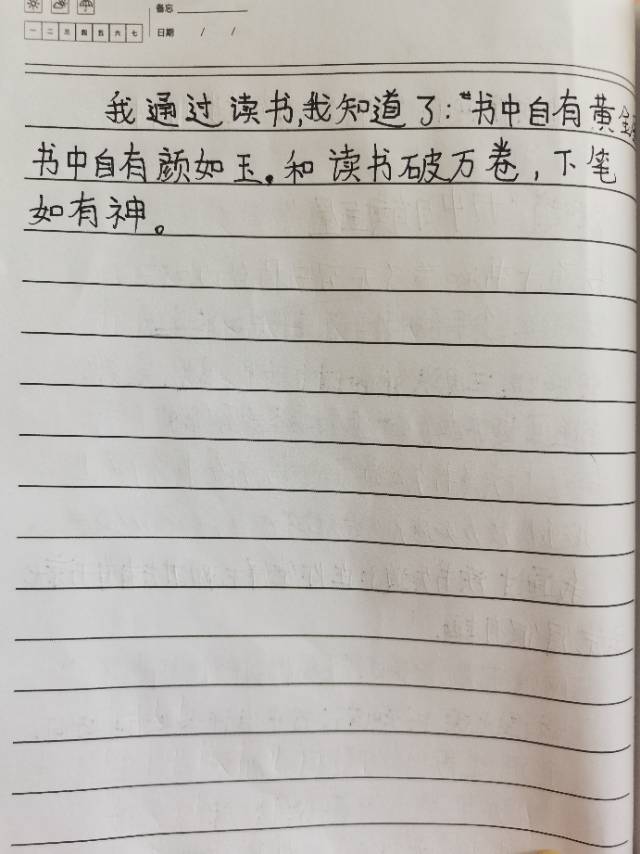 备忘
一 二 三 四 五 六 七 日期 / /
我通过读书,我知道了:“书中自有黄金
书中自有颜如玉。和读书破万卷,下笔
如有神。